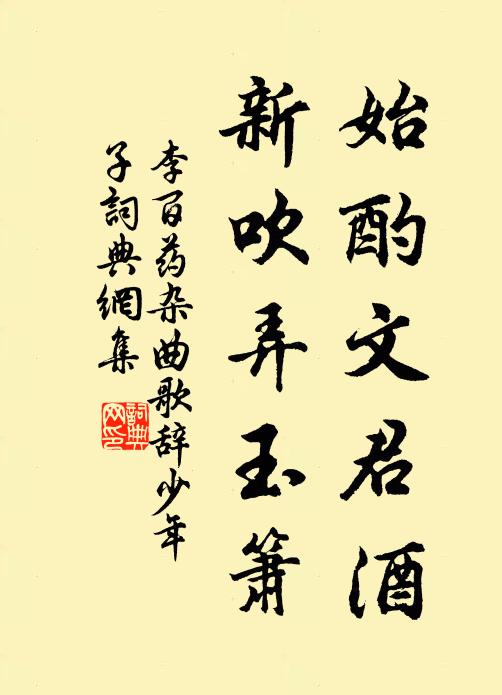 始酌文君酒
新吹弄玉箫
李百药杂曲歌辞少年
子詞典網集
詞典
网印